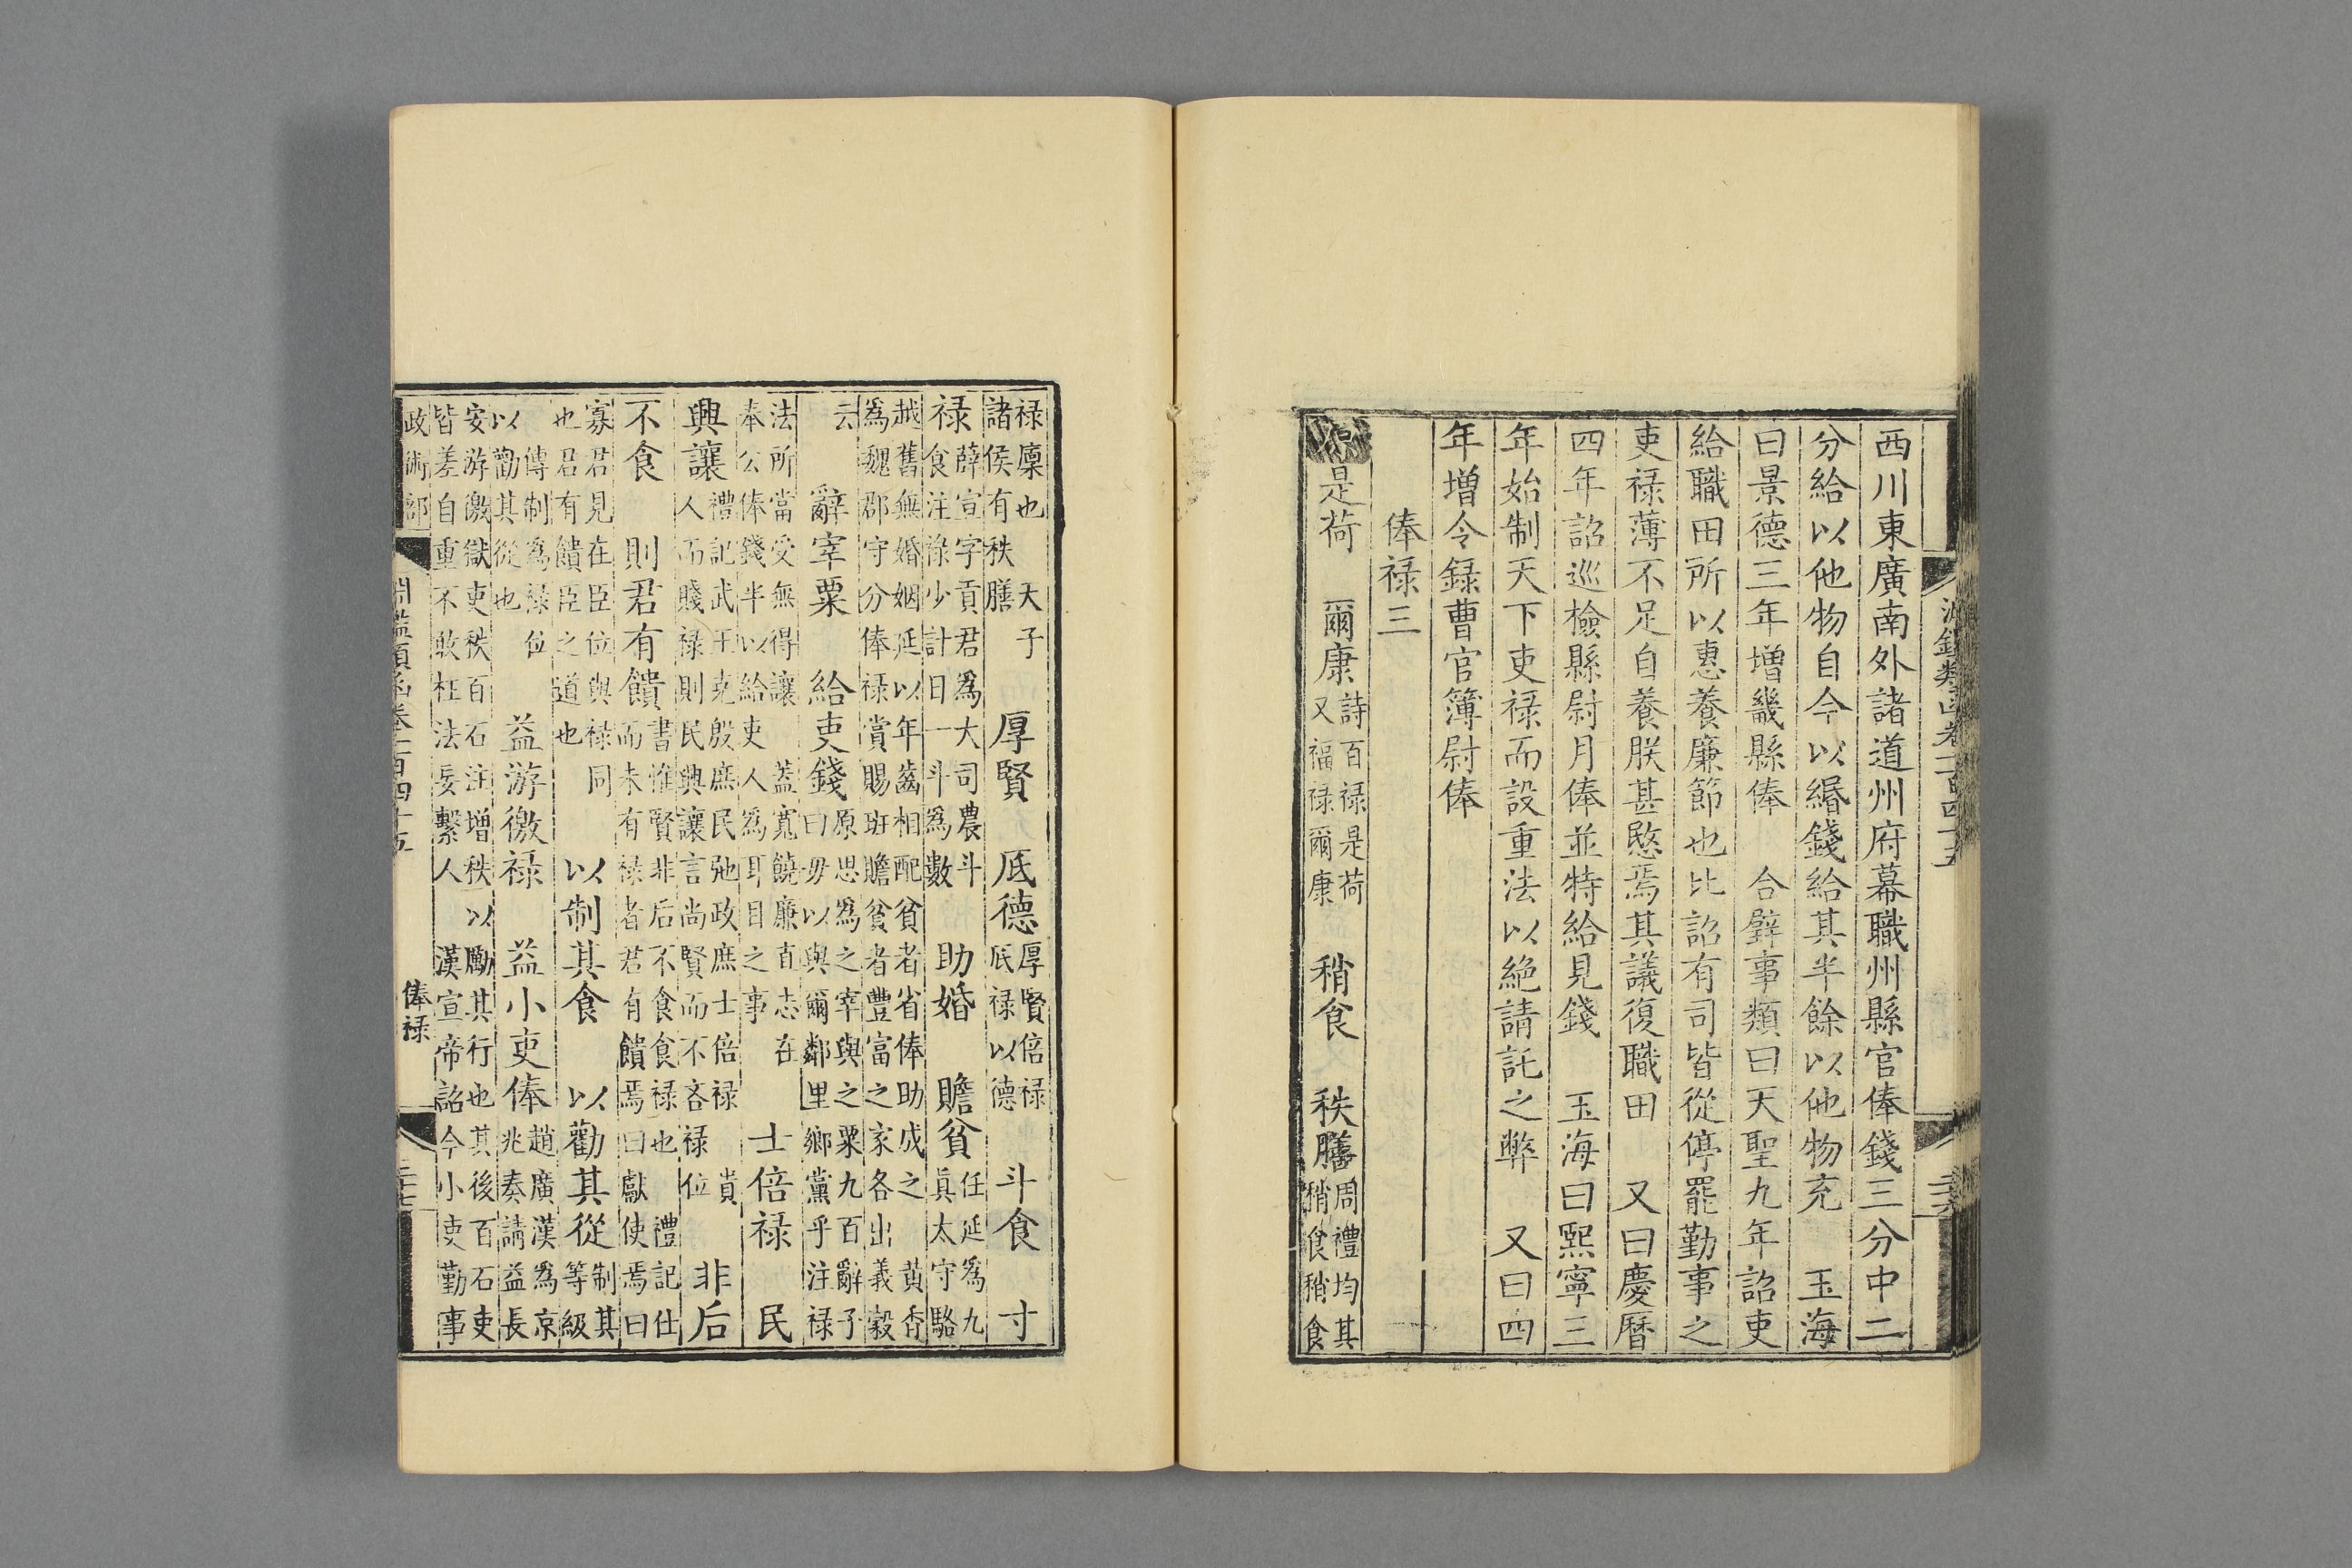 淵鑑類函卷二百四十五
二十六
西川東廣南外諸道州府幕職州縣官俸錢三分中二
分給以他物自今以緡錢給其半餘以他物充　玉海
曰景德三年增畿縣俸　合璧事類曰天聖九年詔吏
給職田所以惠養廉節也比詔有司皆從停罷勤事之
吏禄薄不足自養朕甚愍焉其議復職田　又曰慶曆
四年詔巡檢縣尉月俸並特給見錢　玉海曰熙寧三
年始制天下吏禄而設重法以絶請託之弊　又曰四
年增令録曹官簿尉俸
俸禄三
原是荷　爾康　詩百禄是荷又福禄爾康　稍食　秩膳　周禮均其稍食稍食
禄廩也　天子諸侯有秩膳　厚賢　底德　厚賢倍禄底禄以德　斗食　寸
禄　薛宣字貢君為大司農斗食注禄少計日一斗為數　助婚　贍貧　任延為九真太守駱
越舊無婚姻延以年齒相配貧者省俸助成之　黄香為魏郡守分俸禄賞賜班贍貧者豐富之家各出義穀
云　辭宰粟　給吏錢　原思為之宰與之粟九百辭子曰毋以與爾鄰里鄉黨乎注禄
法所當受無得讓　蓋寬饒廉直志在奉公俸錢半以給吏人為耳目之事　士倍禄　民
興讓　禮記武王克殷庶民弛政庶士倍禄　貴人而賤禄則民興讓言尚賢而不吝禄位　非后
不食　則君有饋　書惟賢非后不食食禄也　禮記仕而未有禄者君有饋焉曰獻使焉曰
寡君見在臣位與禄同也君有饋臣之道也　以制其食　以勸其從　制其等級
傳制為禄位以勸其從也　益游徼禄　益小吏俸　趙廣漢為京兆奏請益長
安游徼獄吏秩百石注增秩以勵其行也其後百石吏皆差自重不敢枉法妄繫人　漢宣帝詔今小吏勤事
政術部　淵鑑類函卷二百四十五　俸禄　二十七